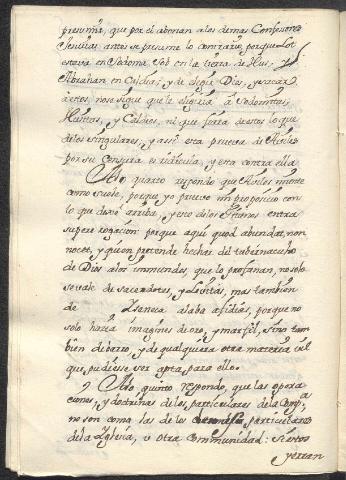 presuma, que por él abonan a los demas Confesores
Jesuitas, antes se presume lo contrario, porque Lot
estava en Sodoma, Job en la tierra de Hus, y
Abrahan en Caldéa; y de elegir Dios, y sacar
a estos, no se sigue que le eligiria a Sodomitas,
Husitas, y Caldéos, ni que seria de estos lo que
de los singulares, y assi esta prueva de Aviles
por su Consulta es ridicula, y esta contra ella
Alo quarto respondo que Aviles miente
como suele, porque yo pruevo mi proposicion con
lo que desde arriba, y eso de los entra
supererogacion porque aqui quod abundat, non
nocet, y quien pretende hechar del tabernaculo
de Dios a los inmundos, que lo profanan, no solo
se vale de sacerdotes, y Levitas, mas tambien
de Seneca alaba a fidias, porque no
solo hacia imagines de oro, y marfil, sino tam
bien de barro, y de qualquiera otra materia vil
que, pudiese ser apta para ello.
Alo quinto respondo, que las opera
ciones, y doctrinas de los particulares de la Compª
no son como las de los particulares
de la Yglesia, u otra Communidad: si estos
yerran